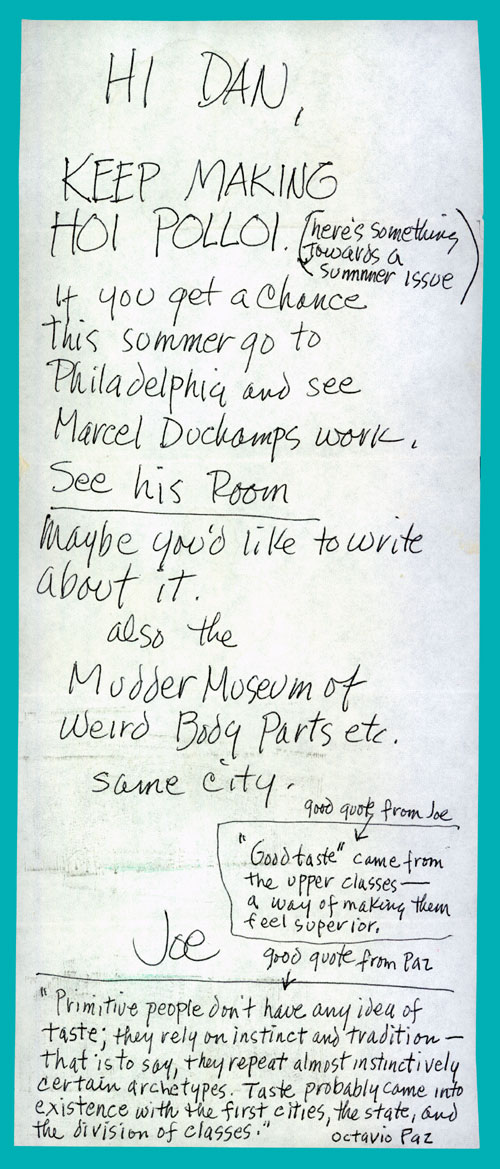 HI DAN,
KEEP MAKING
HOI POLLOI. (Here's something
towards a
summmer issue)
If you get a chance
this summer go to
Philadelphia and see
Marcel Duchamps work.
See his Room
maybe you'd like to write
about it.
also the
Mudder Museum of
Weird Body Parts etc.
same city.
good quote from Joe
"Good taste" came from
the upper classes—
a way of making them
feel superior.
Joe
good quote from Paz
"Primitive people don't have any idea of
taste; they rely on instinct and tradition—
that is to say, they repeat almost instinctively
certain archetypes. Taste probably came into
existence with the first cities, the state, and
the division of classes."
octavio Paz